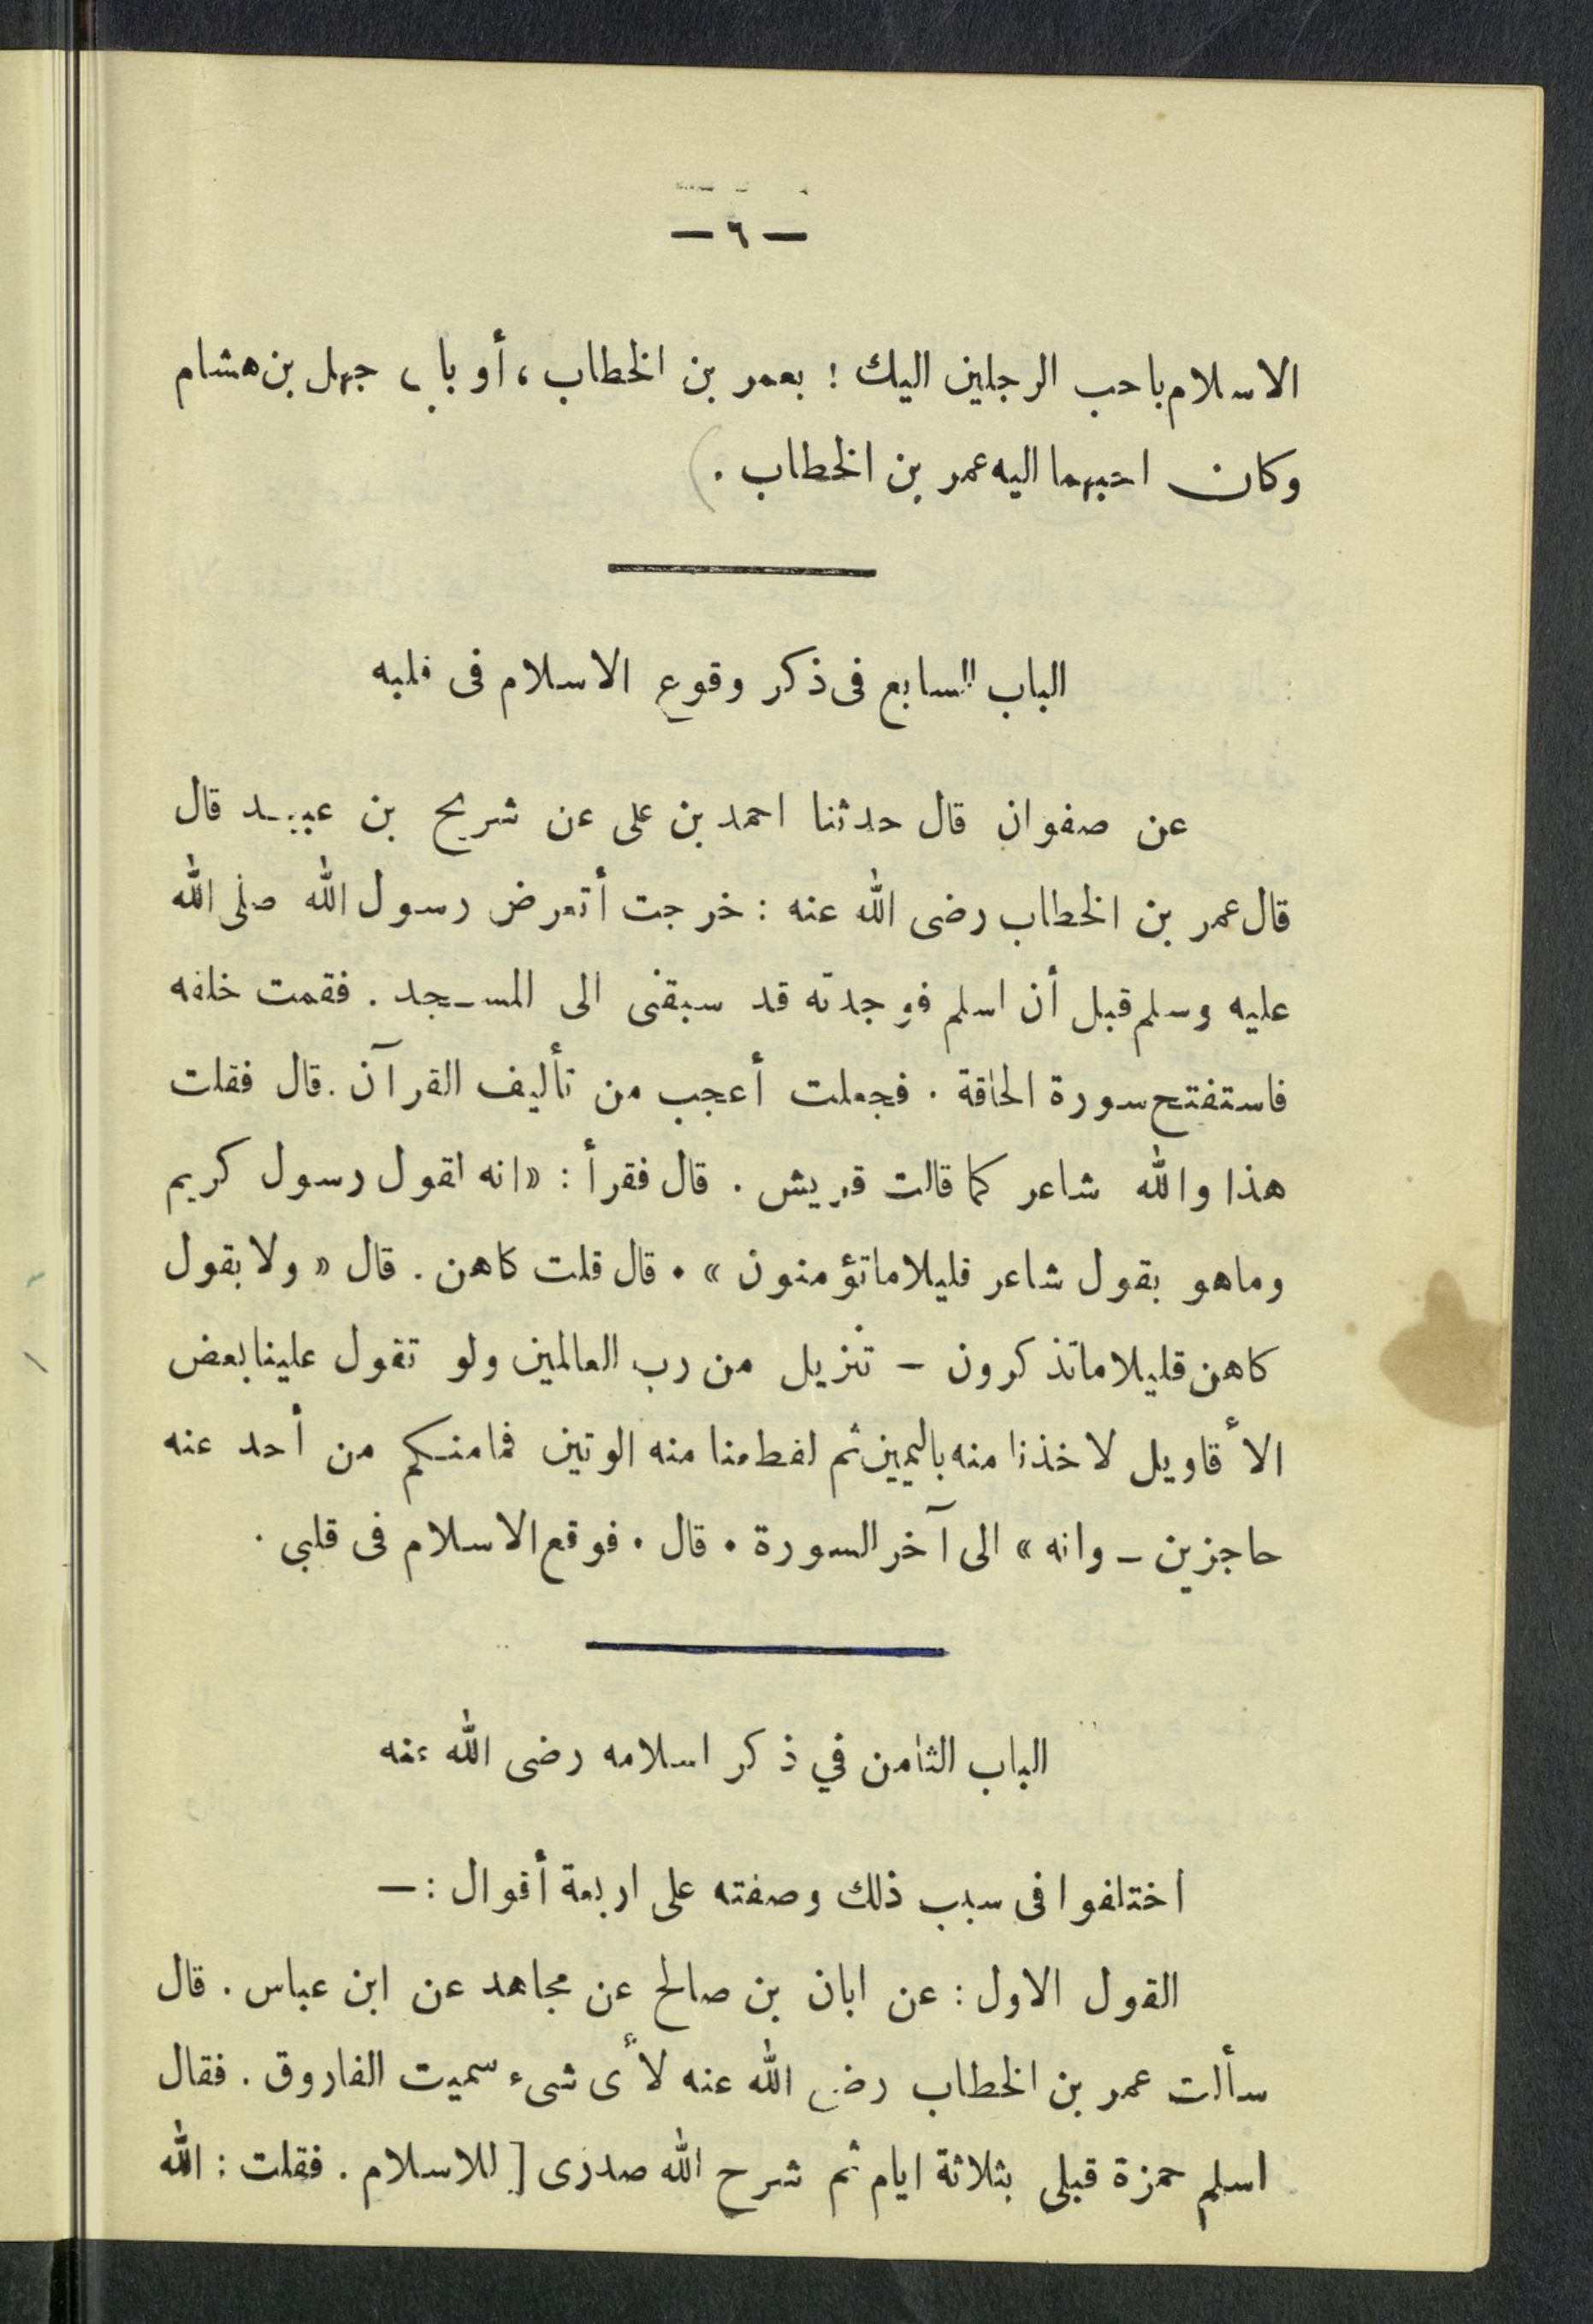 — ٦ —
الاسلام باحب الرجلين اليك ! بعمر بن الخطاب ، أو بابي جهل بن هشام
وكان احبهما اليه عمر بن الخطاب .
الباب السابع فى ذكر وقوع الاسلام فى قلبه
عن صفوان قال حدثنا احمد بن على عن شريح بن عبيد قال
قال عمر بن الخطاب رضى الله عنه : خرجت أتعرض رسول الله صلى الله
عليه وسلم قبل أن اسلم فوجدته قد سبقنى الى المسجد . فقمت خلفه
فاستفتح سورة الحاقة . فجعلت أعجب من تأليف القرآن . قال فقلت
هذا والله شاعر كما قالت قريش . قال فقرأ : « انه لقول رسول كريم
وماهو بقول شاعر قليلا ماتؤمنون » . قال قلت كاهن . قال « ولا بقول
كاهن قليلا ماتذكرون – تنزيل من رب العالمين ولو تقول علينا بعض
الأقاويل لاخذنا منه باليمين ثم لقطعنا منه الوتين فمامنكم من أحد عنه
حاجزين – وانه » الى آخر السورة . قال . فوقع الاسلام فى قلبي .
الباب الثامن في ذكر اسلامه رضى الله عنه
اختلفوا فى سبب ذلك وصفته على اربعة أقوال : —
القول الاول : عن ابان بن صالح عن مجاهد عن ابن عباس . قال
سألت عمر بن الخطاب رضى الله عنه لأى شىء سميت الفاروق . فقال
اسلم حمزة قبلى بثلاثة ايام ثم شرح الله صدرى [ للاسلام . فقلت : الله